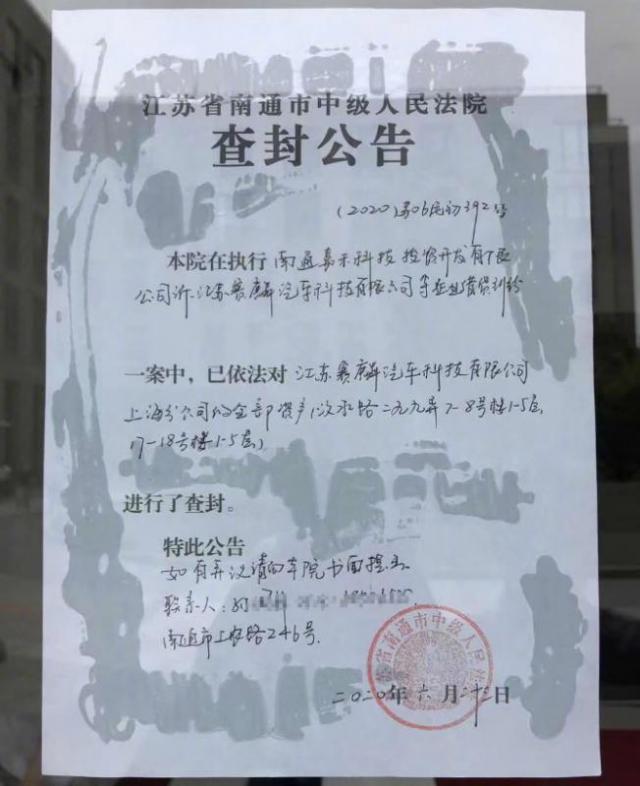 江苏省南通市中级人民法院
查封公告
(2020)苏06民初392号
本院在执行 南通嘉禾科技投资开发有限
公司诉江苏赛麟汽车科技有限公司等企业借贷纠纷
一案中,已依法对 江苏赛麟汽车科技有限公司
上海分公司的全部资产(汶水路二九九弄7-8号楼1-5层,
17-18号楼1-5层)
进行了查封。
特此公告
如有异议请向本院书面提出
联系人:
南通市工农路246号.
二〇二〇年六月二十三日
南通市中级人民